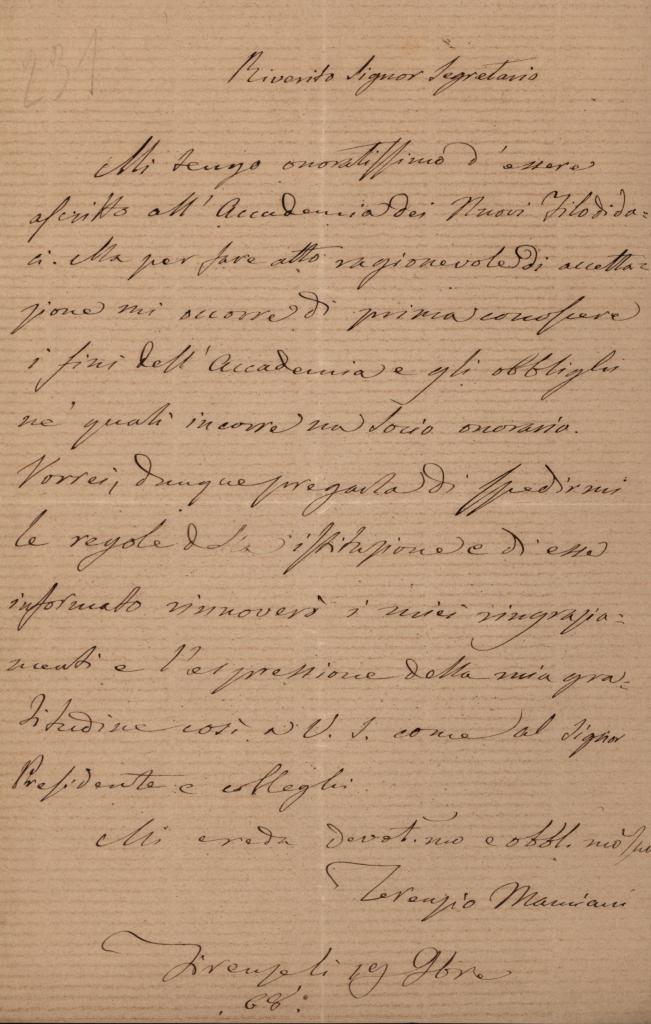 231
Riverito Signor Segretario
Mi tengo onoratissimo d'essere
ascritto all'Accademia dei Nuovi Filodida=
ci. Ma per fare atto ragionevole di accetta=
zione mi occorre di prima conoscere
i fini dell'Accademia e gli obblighi
ne' quali incorre un Socio onorario.
Vorrei, dunque pregarla di spedirmi
le regole della istituzione e di esse
informato rinnoverò i miei ringrazia=
menti e l'espressione della mia gra=
titudine così a V. S. come al Signor
Presidente e colleghi.
Mi creda devot.mo e obbl.mo suo
Terenzio Mamiani
Firenze li 19 9bre
68.